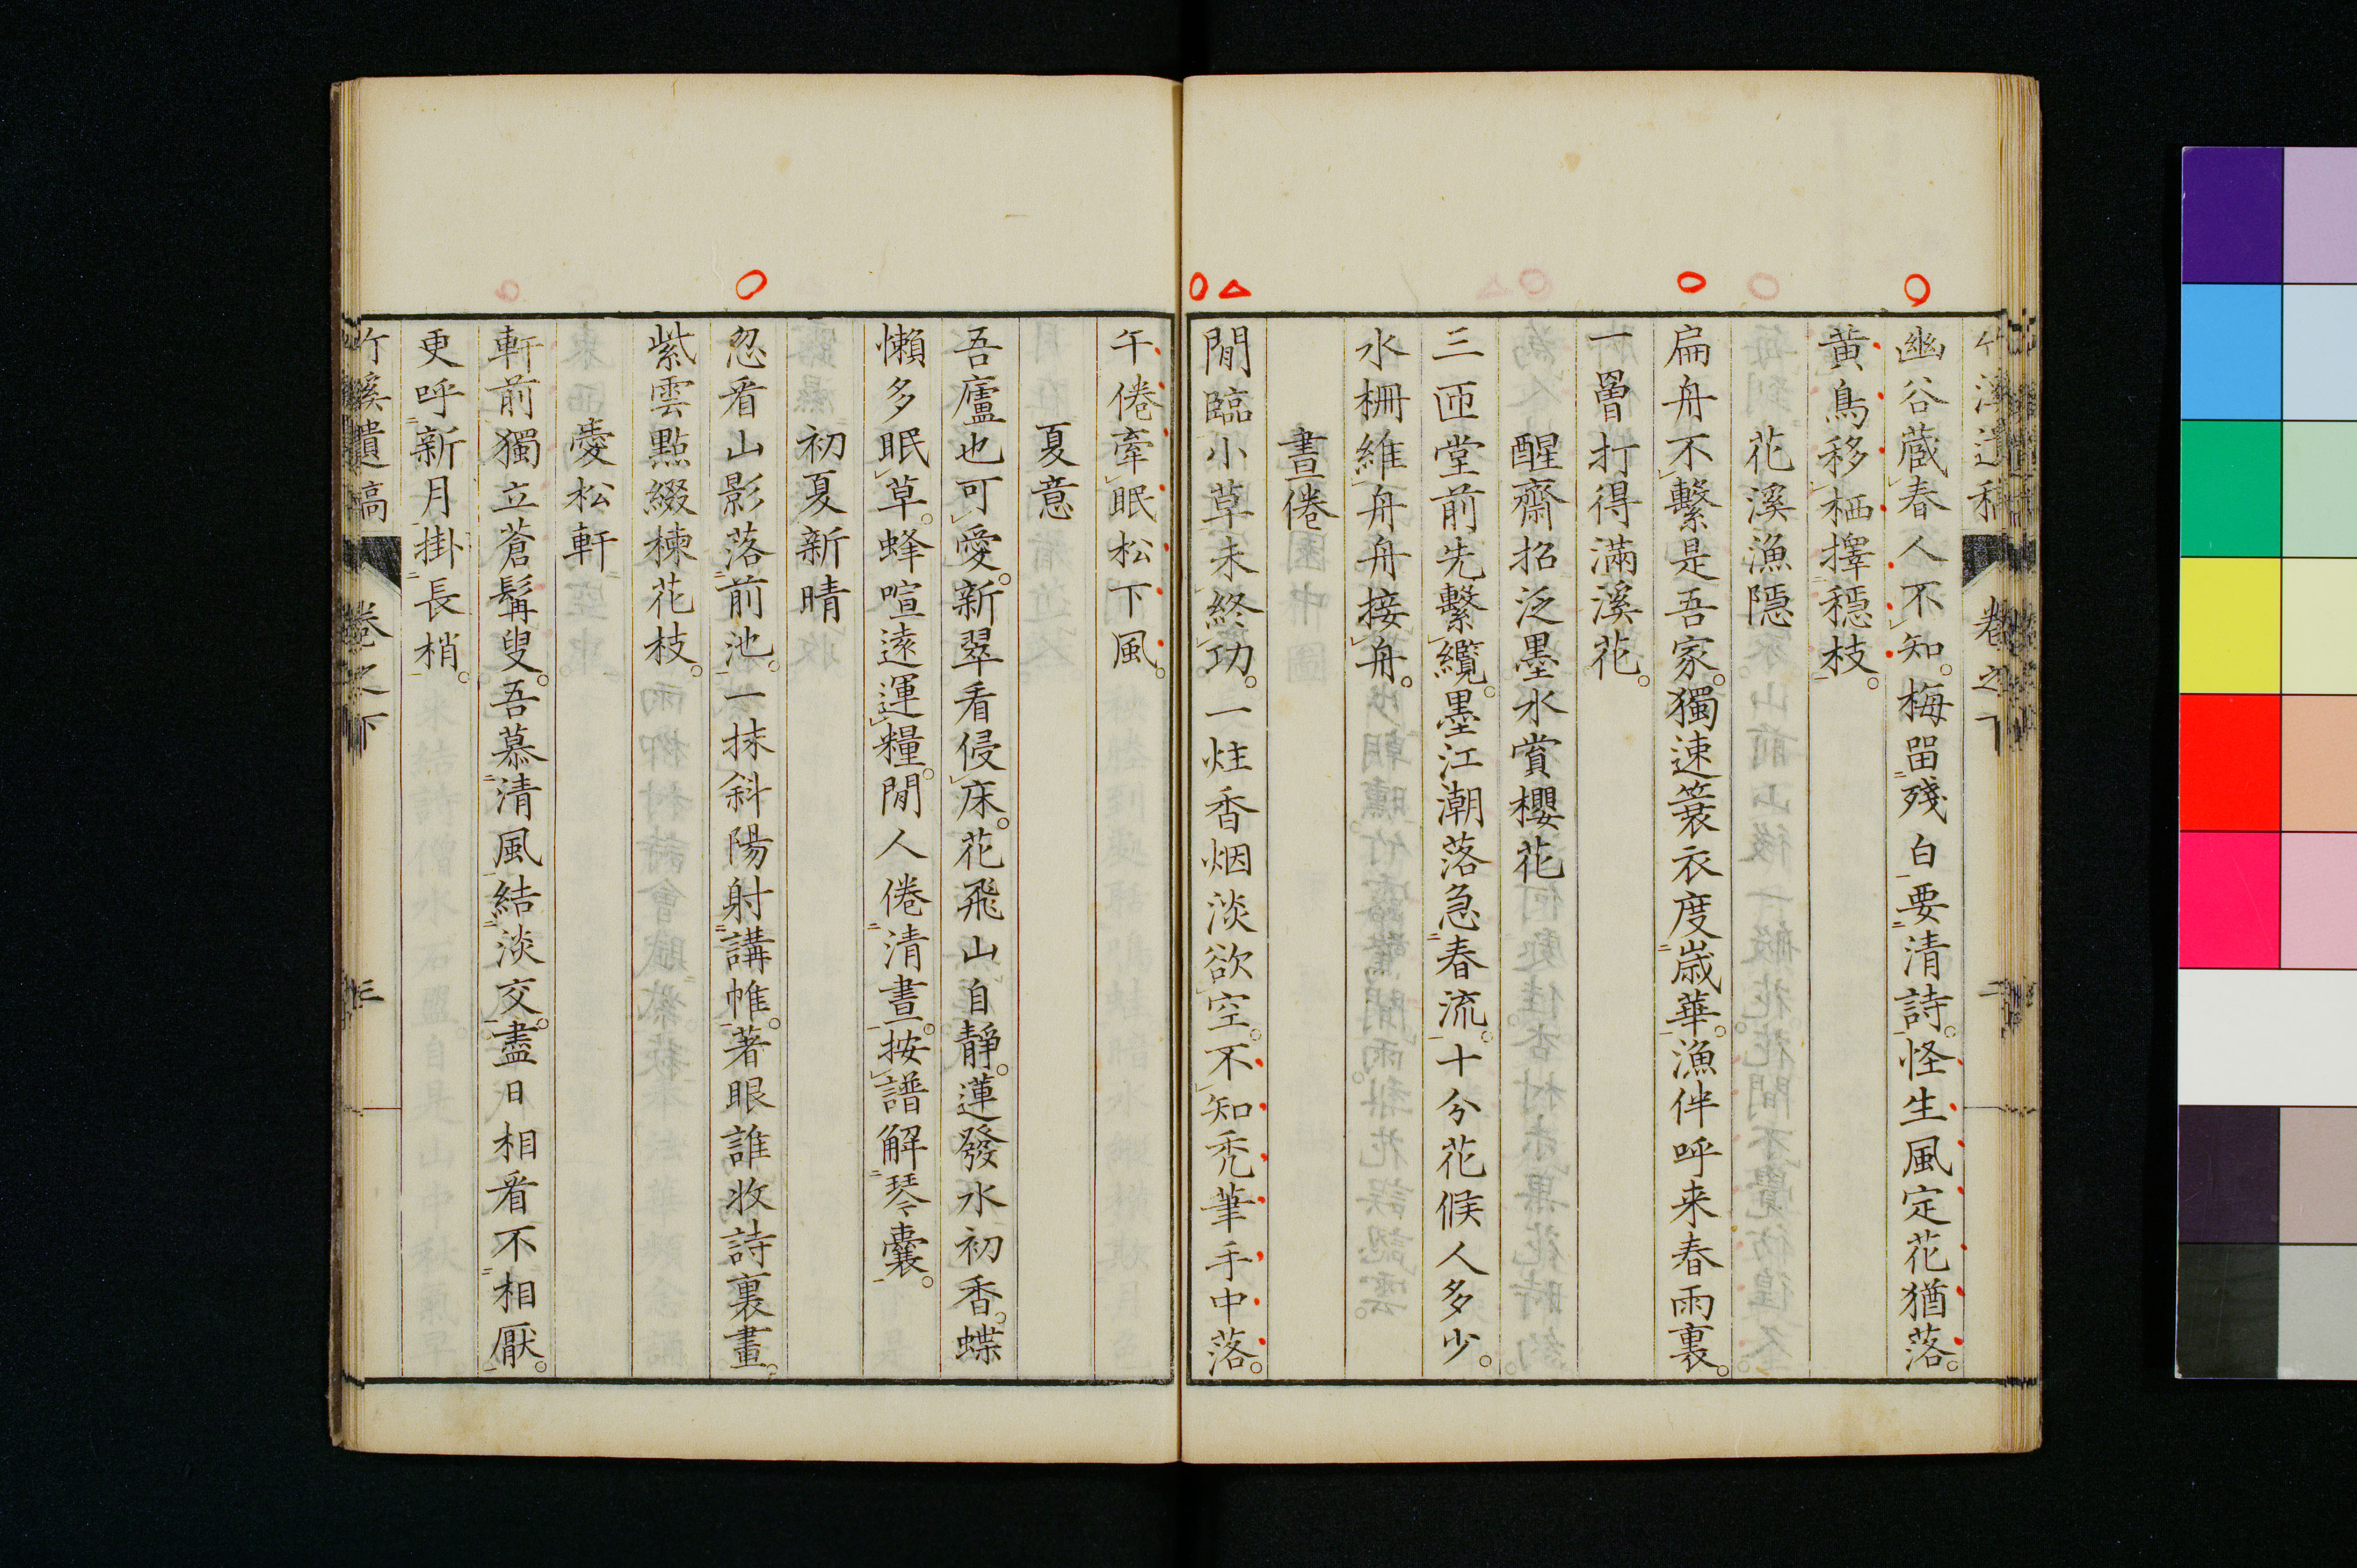 幽谷蔵春人不知。梅畱殘白要清詩。怪生風定花猶落。
黄鳥移栖擇穏枝。
花溪漁隠
扁舟不繫是吾家。獨速簑衣度歳華。漁伴呼来春雨裏。
一罾打得滿溪花。
醒齋招泛墨水賞櫻花
三匝堂前先繫纜。墨江潮落急春流。十分花候人多少。
水柵維舟舟接舟。
晝倦
閒臨小草未終功。一炷香烟淡欲空。不知禿筆手中落。
午倦牽眠松下風。
夏意
吾廬也可愛。新翠看侵床。花飛山自靜。蓮發水初香。蝶
懶多眠草。蜂喧遠運糧。閒人倦清晝。按譜解琴囊。
初夏新晴
忽看山影落前池。一抹斜陽射講帷。著眼誰收詩裏畫。
紫雲點綴楝花枝。
愛松軒
軒前獨立蒼髯叟。吾慕清風結淡交。盡日相看不相厭。
更呼新月掛長梢。
竹溪遺稿 卷之下 三